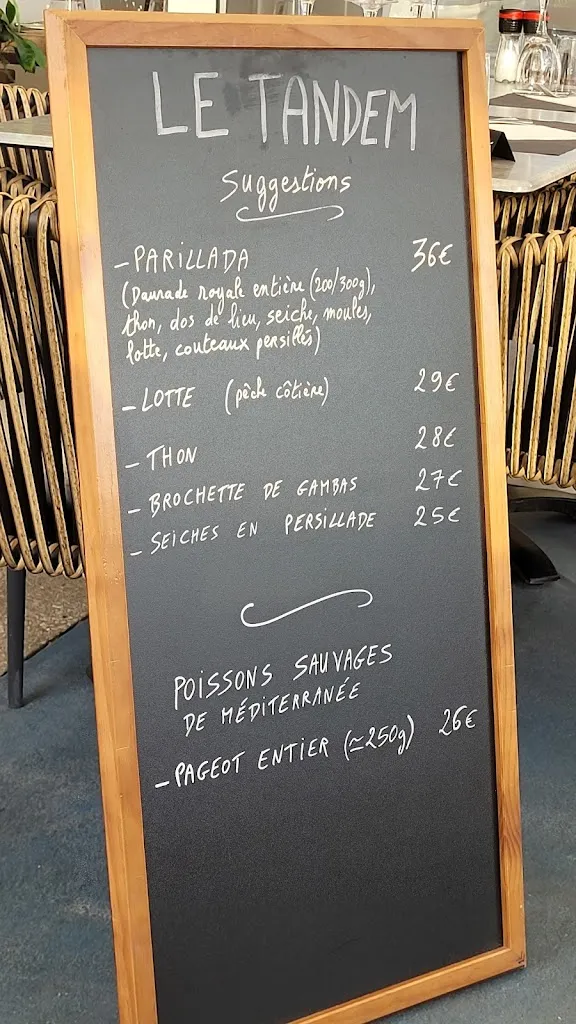 LE TANDEM
Suggestions
- PARILLADA 36€
(Daurade royale entière (200/300g),
thon, dos de lieu, seiche, moules,
lotte, couteaux persillés)
- LOTTE (pêche côtière) 29€
- THON 28€
- BROCHETTE DE GAMBAS 27€
- SEICHES EN PERSILLADE 25€
POISSONS SAUVAGES
DE MÉDITERRANÉE
- PAGEOT ENTIER (≃250g) 26€